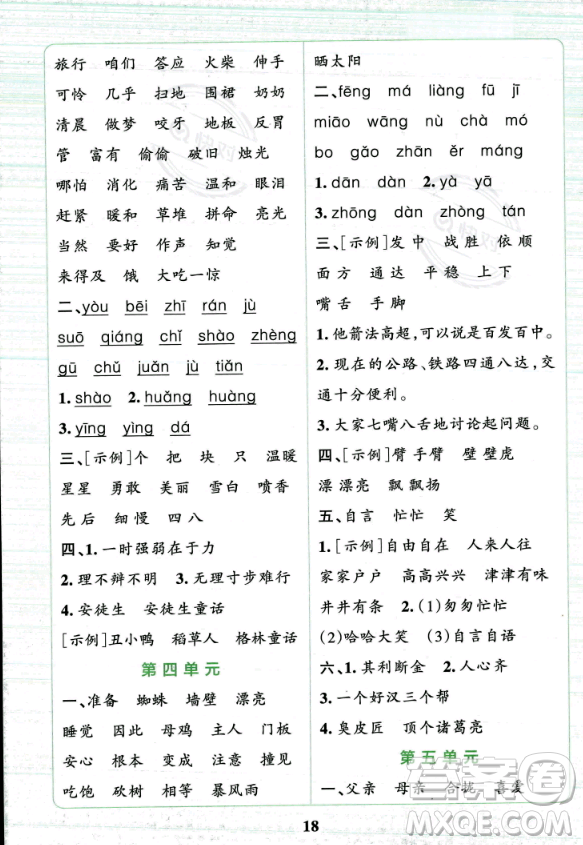 旅行 咱们 答应 火柴 伸手
可怜 几乎 扫地 围裙 奶奶
清晨 做梦 咬牙 地板 反胃
管 富有 偷偷 破旧 烛光
哪怕 消化 痛苦 温和 眼泪
赶紧 暖和 草堆 拼命 亮光
当然 要好 作声 知觉
来得及 饿 大吃一惊
二、yòu bēi zhī rán jù
suō qiáng chǐ shào zhào
gū chǔ juǎn jù tiǎn
1.shào 2.huǎng huàng
3.yīng yìng dá
三、[示例]个 把 块 只 温暖
星星 勇敢 美丽 雪白 喷香
先后 细慢 四八
四、1.一时强弱在于力
2.理不辩不明 3.无理寸步难行
4.安徒生 安徒生童话
[示例]丑小鸭 稻草人 格林童话
第四单元
一、准备 蜘蛛 墙壁 漂亮
睡觉 因此 母鸡 主人 门板
安心 根本 变成 注意 撞见
吃饱 砍树 相等 暴风雨
晒太阳
二、fēng má liàng fū jī
miāo wāng nù chà mó
bo gǎo zhān ěr máng
1.dān dàn 2.yà yā
3.zhōng dàn zhòng tán
三、[示例]发中 战胜 依顺
面方 通达 平稳 上下
嘴舌 手脚
1.他箭法高超,可以说是百发百中。
2.现在的公路、铁路四通八达,交
通十分便利。
3.大家七嘴八舌地讨论起问题。
四、[示例]臂 手臂 壁 壁虎
漂 漂亮 飘 飘扬
五、自言 忙忙 笑
1.[示例]自由自在 人来人往
家家户户 高高兴兴 津津有味
井井有条 2.(1)匆匆忙忙
(2)哈哈大笑 (3)自言自语
六、1.其利断金 2.人心齐
3.一个好汉三个帮
4.臭皮匠 顶个诸葛亮
第五单元
一、父亲 母亲 合拢 喜爱
18
答案圈
MXQE.COM